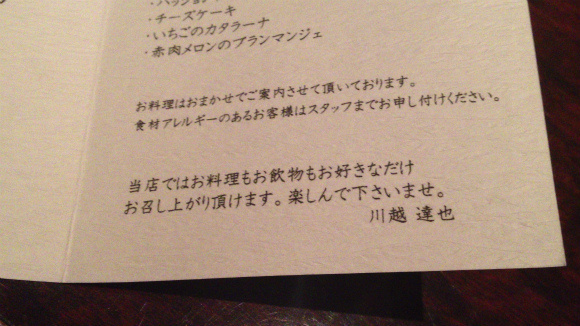 ・チーズケーキ
・いちごのカタラーナ
・赤肉メロンのブランマンジェ
お料理はおまかせでご案内させて頂いております。
食材アレルギーのあるお客様はスタッフまでお申し付けください。
当店ではお料理もお飲物もお好きなだけ
お召し上がり頂けます。楽しんで下さいませ。
川越 達也